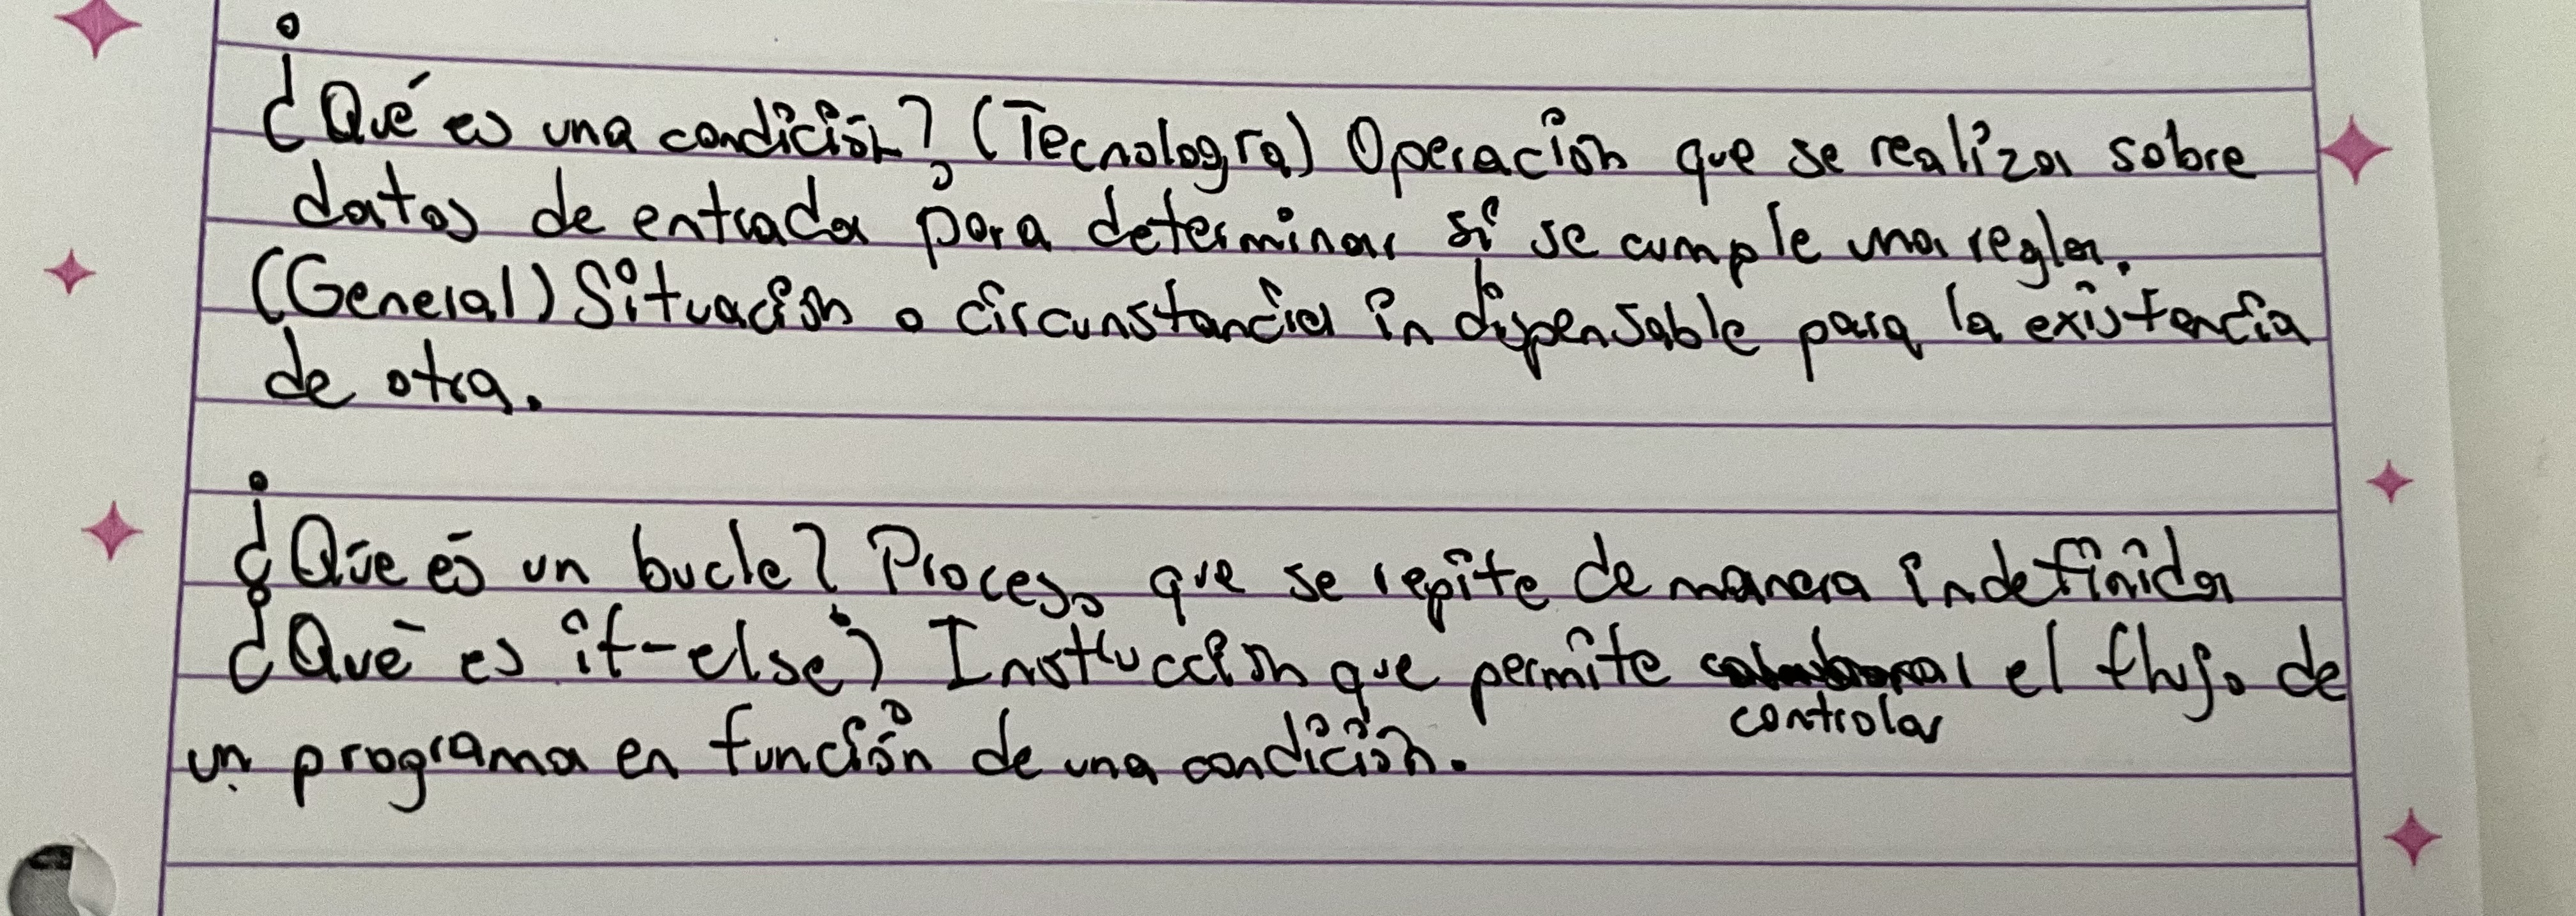 ¿Qué es una condición? (Tecnología) Operación que se realiza sobre
datos de entrada para determinar si se cumple una regla.
(General) Situación o circunstancia indispensable para la existencia
de otra.
¿Qúe es un bucle? Proceso que se repite de manera indefinida
¿Qué es if-else? Instrucción que permite el flujo de
controlar
un programa en función de una condición.